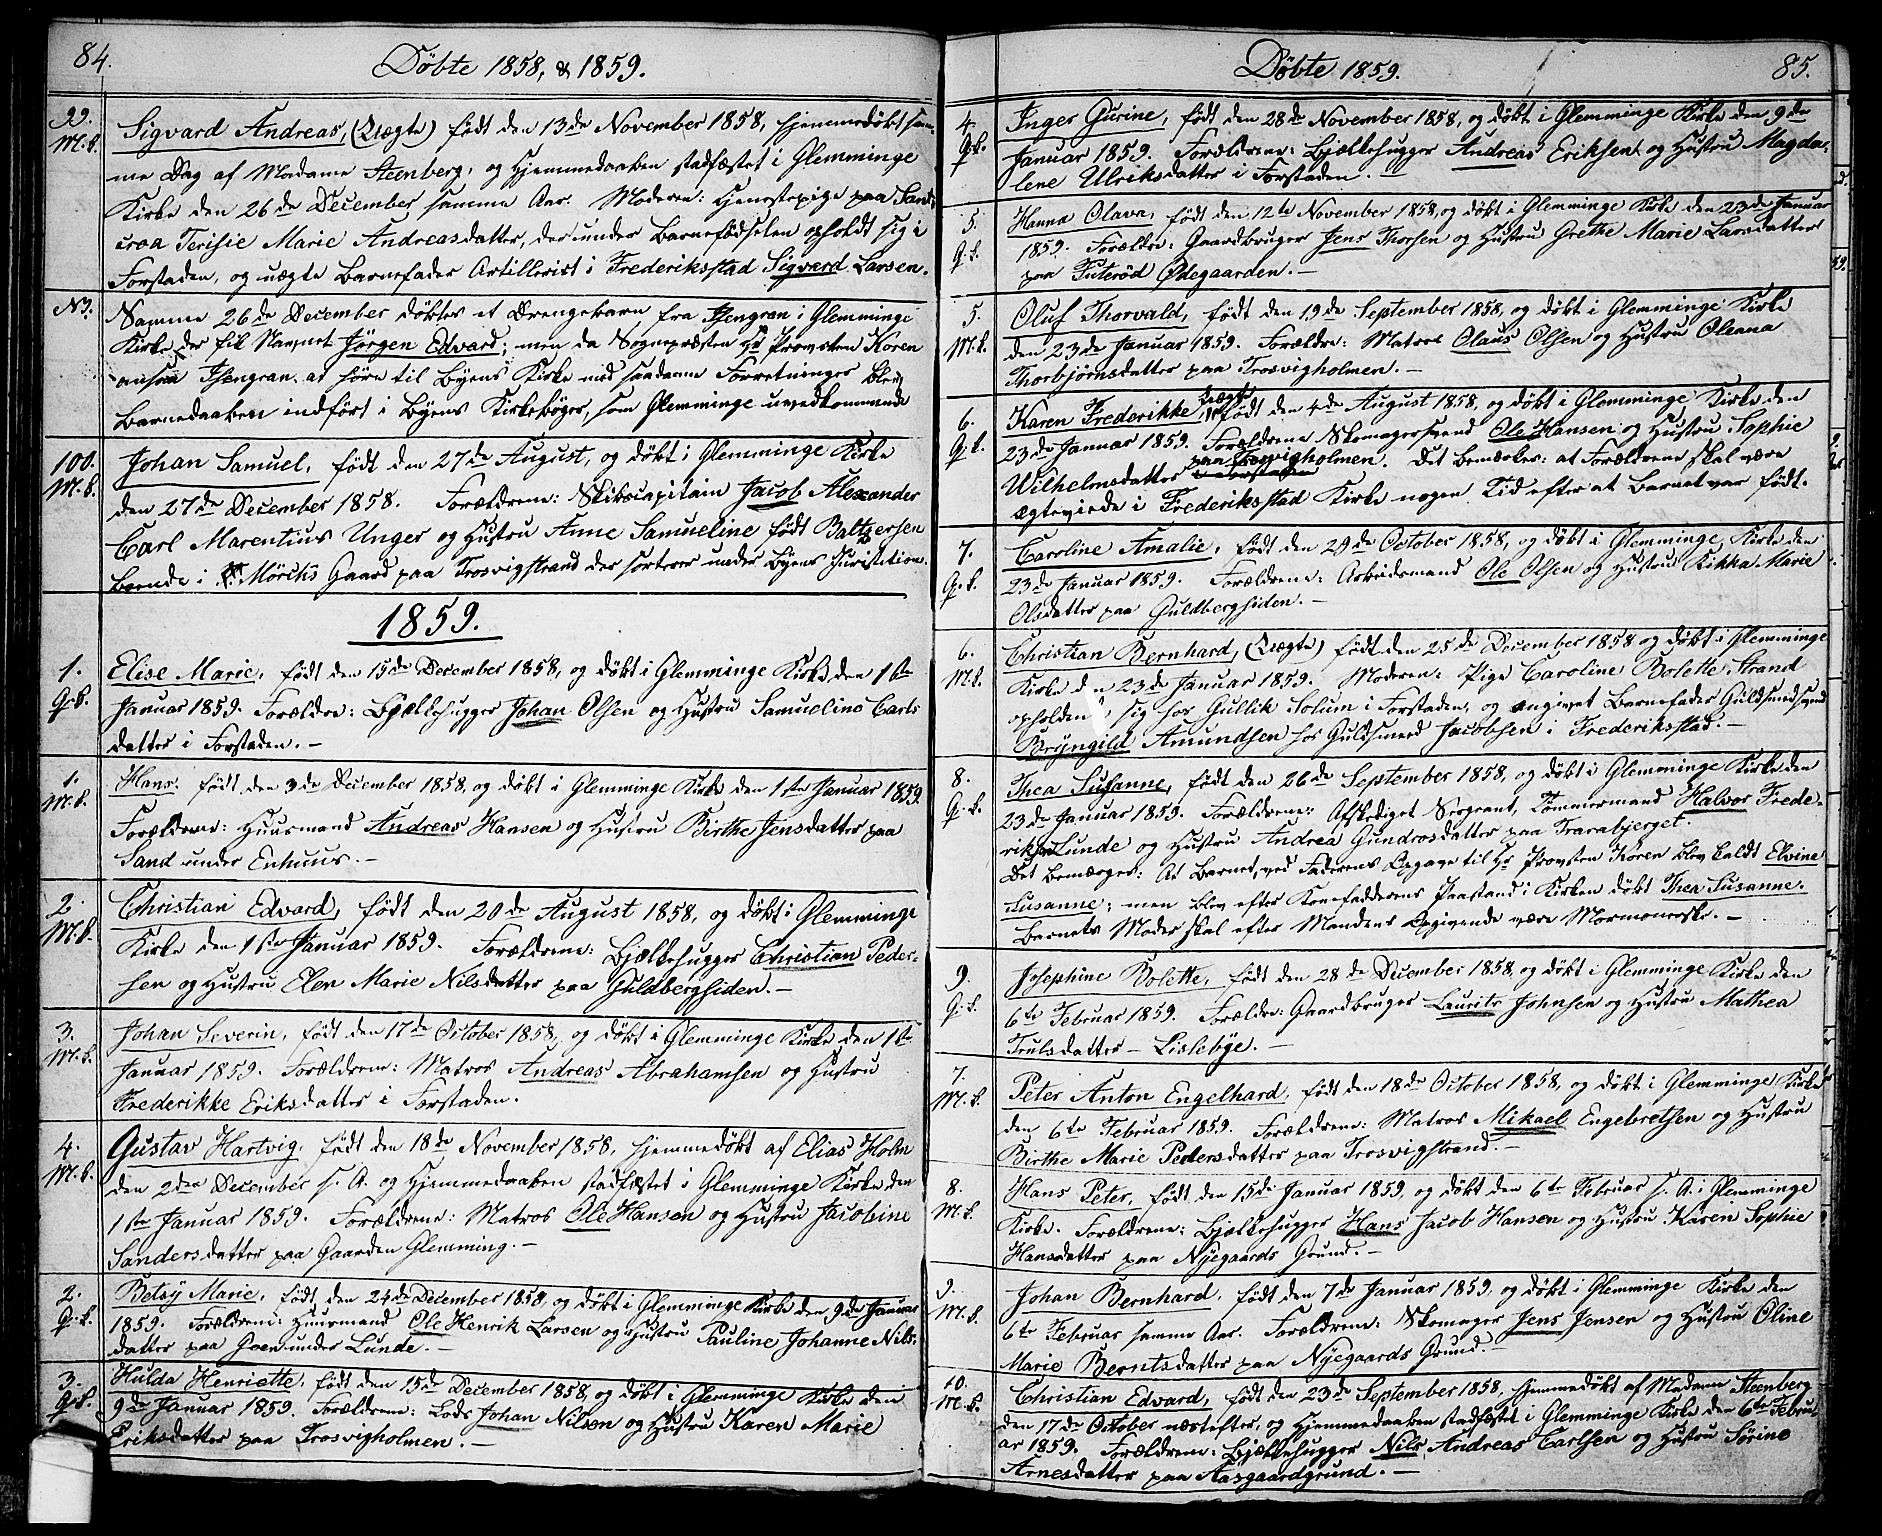 84.
Döbte 1858, & 1859.
99.
M.k.
Sigvard Andreas, (Uægte) födt den 13de November 1858, hjemmedöbt sam-
me Dag af Madame Steenberg, og Hjemmedaaben stadfæstet i Glemminge
Kirke den 26de December samme Aar. Moderen: Tjenestepige paa Sand-
Terisie Marie Andreasdatter, der under Barnefödselen opholdt sig i
Forstaden, og uægte Barnefader Artillerist i Frederiksstad Sigvard Larsen.
NB.
Samme 26de December döbtes et Drengebarn fra Isengran i Glemminge
Kirke der fik Navnet Jörgen Edvard; men da Sognepræsten Hr Provsten Koren
ansaa Isengran at höre til Byens Kirke med saadanne Forretninger blev
Barnedaaben indfört i Byens Kirkebøger, som Glemminge uvedkommende
100.
M.k.
Johan Samuel, födt den 27de August, og döbt i Glemminge Kirke
den 27de December 1858. Forældrene: Skibscapitain Jacob Alexander
Carl Marentius Unger og Hustru Anne Samueline födt Baltzersen
boende i Mörchs Gaard paa Trosvigstrand der sorterer under Byens Juristition.
1859.
1.
Q.k.
Elise Marie, födt den 15de December 1858, og döbt i Glemminge Kirke den 1ste
Januar 1859. Forældre: Bjælkehugger Johan Olsen og Hustru Samueline Carls
datter i Forstaden. -
1.
M.k.
Hans, födt den 3de December 1858, og döbt i Glemminge Kirke den 1ste Januar 1859.
Forældrene: Huusmand Andreas Hansen og Hustru Birthe Jensdatter paa
Sand under Enhuus. -
2.
M.k.
Christian Edvard, födt den 20de August 1858, og döbt i Glemminge
Kirke den 1ste Januar 1859. Forældrene: Bjælkehugger Christian Peder-
sen og Hustru Elen Marie Nilsdatter paa Guldbergsiden. -
3.
M.k.
Johan Severin, födt den 17de October 1858, og döbt i Glemminge Kirke den 1ste
Januar 1859. Forældrene: Matros Andreas Abrahamsen og Hustru
Frederikke Eriksdatter i Forstaden.
4.
M.k.
Gustav Hartvig, födt den 18de November 1858, hjemmedöbt af Elias Holm
den 2den December s. A. og Hjemmedaaben stadfæstet i Glemminge Kirke den
1ste Januar 1859. Forældrene: Matros Ole Hansen og Hustru Jacobine
Sandersdatter paa Gaarden Glemming. -
2.
Q.k.
Betsy Marie, födt den 24de December 1858, og döbt i Glemminge Kirke den 9de Januar
1859. Forældrene: Huusmand Ole Henrik Larsen og Hustru Pauline Johanne Nils-
datter paa Goen under Lunde. -
3.
Q.k.
Hulda Henriette, födt den 15de December 1858, og döbt i Glemminge Kirke den
9de Januar 1859. Forældrene: Lods Johan Nilsen og Hustru Karen Marie
Eriksdatter paa Trosvigholmen. -
Döbte 1859.
85.
4.
Q.k.
Inger Gurine, födt den 28de November 1858, og döbt i Glemminge Kirke den 9de
Januar 1859. Forældrene: Bjælkehugger Andreas Eriksen og Hustru Magda-
lene Ulriksdatter i Forstaden. -
5.
Q.k.
Hanna Olava, födt den 12te November 1858, og döbt i Glemminge Kirke den 23de Januar
1859. Forældre: Gaardbruger Jens Thorsen og Hustru Grethe Marie Larsdatter
paa Puteröd Ødegaarden. -
5.
M.k.
Oluf Thorvald, födt den 19de September 1858, og döbt i Glemminge Kirke
den 23de Januar 1859. Forældre: Matros Olaus Olsen og Hustru Oleana
Thorbjörnsdatter paa Trosvigholmen. -
6.
Q.k.
Karen Frederikke, uægte födt den 4de August 1858, og döbt i Glemminge Kirke den
23de Januar 1859. Forældrene Skomagersvend Ole Hansen og Hustru Sophie
Wilhelmsdatter paa Trosvigholmen. Det bemærkes: at Forældrene skal være
ægteviede i Frederiksstad Kirke nogen Tid efter at Barnet var födt.
7.
Q.k.
Caroline Amalie, födt den 29de October 1858, og döbt i Glemminge Kirke den
23de Januar 1859. Forældrene: Arbeidsmand Ole Olsen og Hustru Kikka Marie
Olsdatter paa Guldbergsiden. -
6.
M.k.
Christian Bernhard, (Uægte) födt den 25de December 1858 og döbt i Glemminge
Kirke den 23de Januar 1859. Moderen: Pige Caroline Bolette Strand
opholdende sig hos Gullik Solum i Forstaden, og angivet Barnefader Guldsmedsvend
Bryngild Amundsen hos Guldsmed Jacobsen i Frederiksstad. -
8.
Q.k.
Thea Susanne, födt den 26de September 1858, og döbt i Glemminge Kirke den
23de Januar 1859. Forældrene: Afskediget Sergeant, Tömmermand Halvor Frede-
riksen Lunde og Hustru Andrea Gundrosdatter paa Trarabjerget.
Det bemærkes: At Barnet, ved Faderens Opgave til Hr Provsten Koren blev kaldt Elvine
Susanne; men blev efter Konefadderens Paastand i Kirken döbt Thea Susanne.
Barnets Moder skal efter Mandens Opgivende være Mormonerske. -
9.
Q.k.
Josephine Bolette, födt den 28de December 1858, og döbt i Glemminge Kirke den
6te Februar 1859. Forældre: Gaardbruger Laurits Johnsen og Hustru Mathea
Trulsdatter - Lislebye. -
7.
M.k.
Peter Anton Engelhard, födt den 18de October 1858, og döbt i Glemminge Kirke
den 6te Februar 1859. Forældrene: Matros Mikael Engebretsen og Hustru
Birthe Marie Pedersdatter paa Trosvigstrand. -
8.
M.k.
Hans Peter, födt den 15de Januar 1859, og döbt den 6te Februar s. A. i Glemminge
Kirke. Forældrene: Bjælkehugger Hans Jacob Hansen og Hustru Karen Sophie
Hansdatter paa Nyegaards Grund. -
9.
M.k.
Johan Bernhard, födt den 7de Januar 1859, og döbt i Glemminge Kirke den
6te Februar samme Aar. Forældrene: Skomager Jens Jensen og Hustru Oline
Marie Berntsdatter paa Nyegaards Grund. -
10.
M.k.
Christian Edvard, födt den 23de September 1858, hjemmedöbt af Madame Steenberg
den 17de October næstefter, og Hjemmedaaben stadfæstet i Glemminge Kirke den 6te Febru-
ar 1859. Forældrene: Bjælkehugger Nils Andreas Carlsen og Hustru Sörine
Arnesdatter paa Aasgaardgrund. -